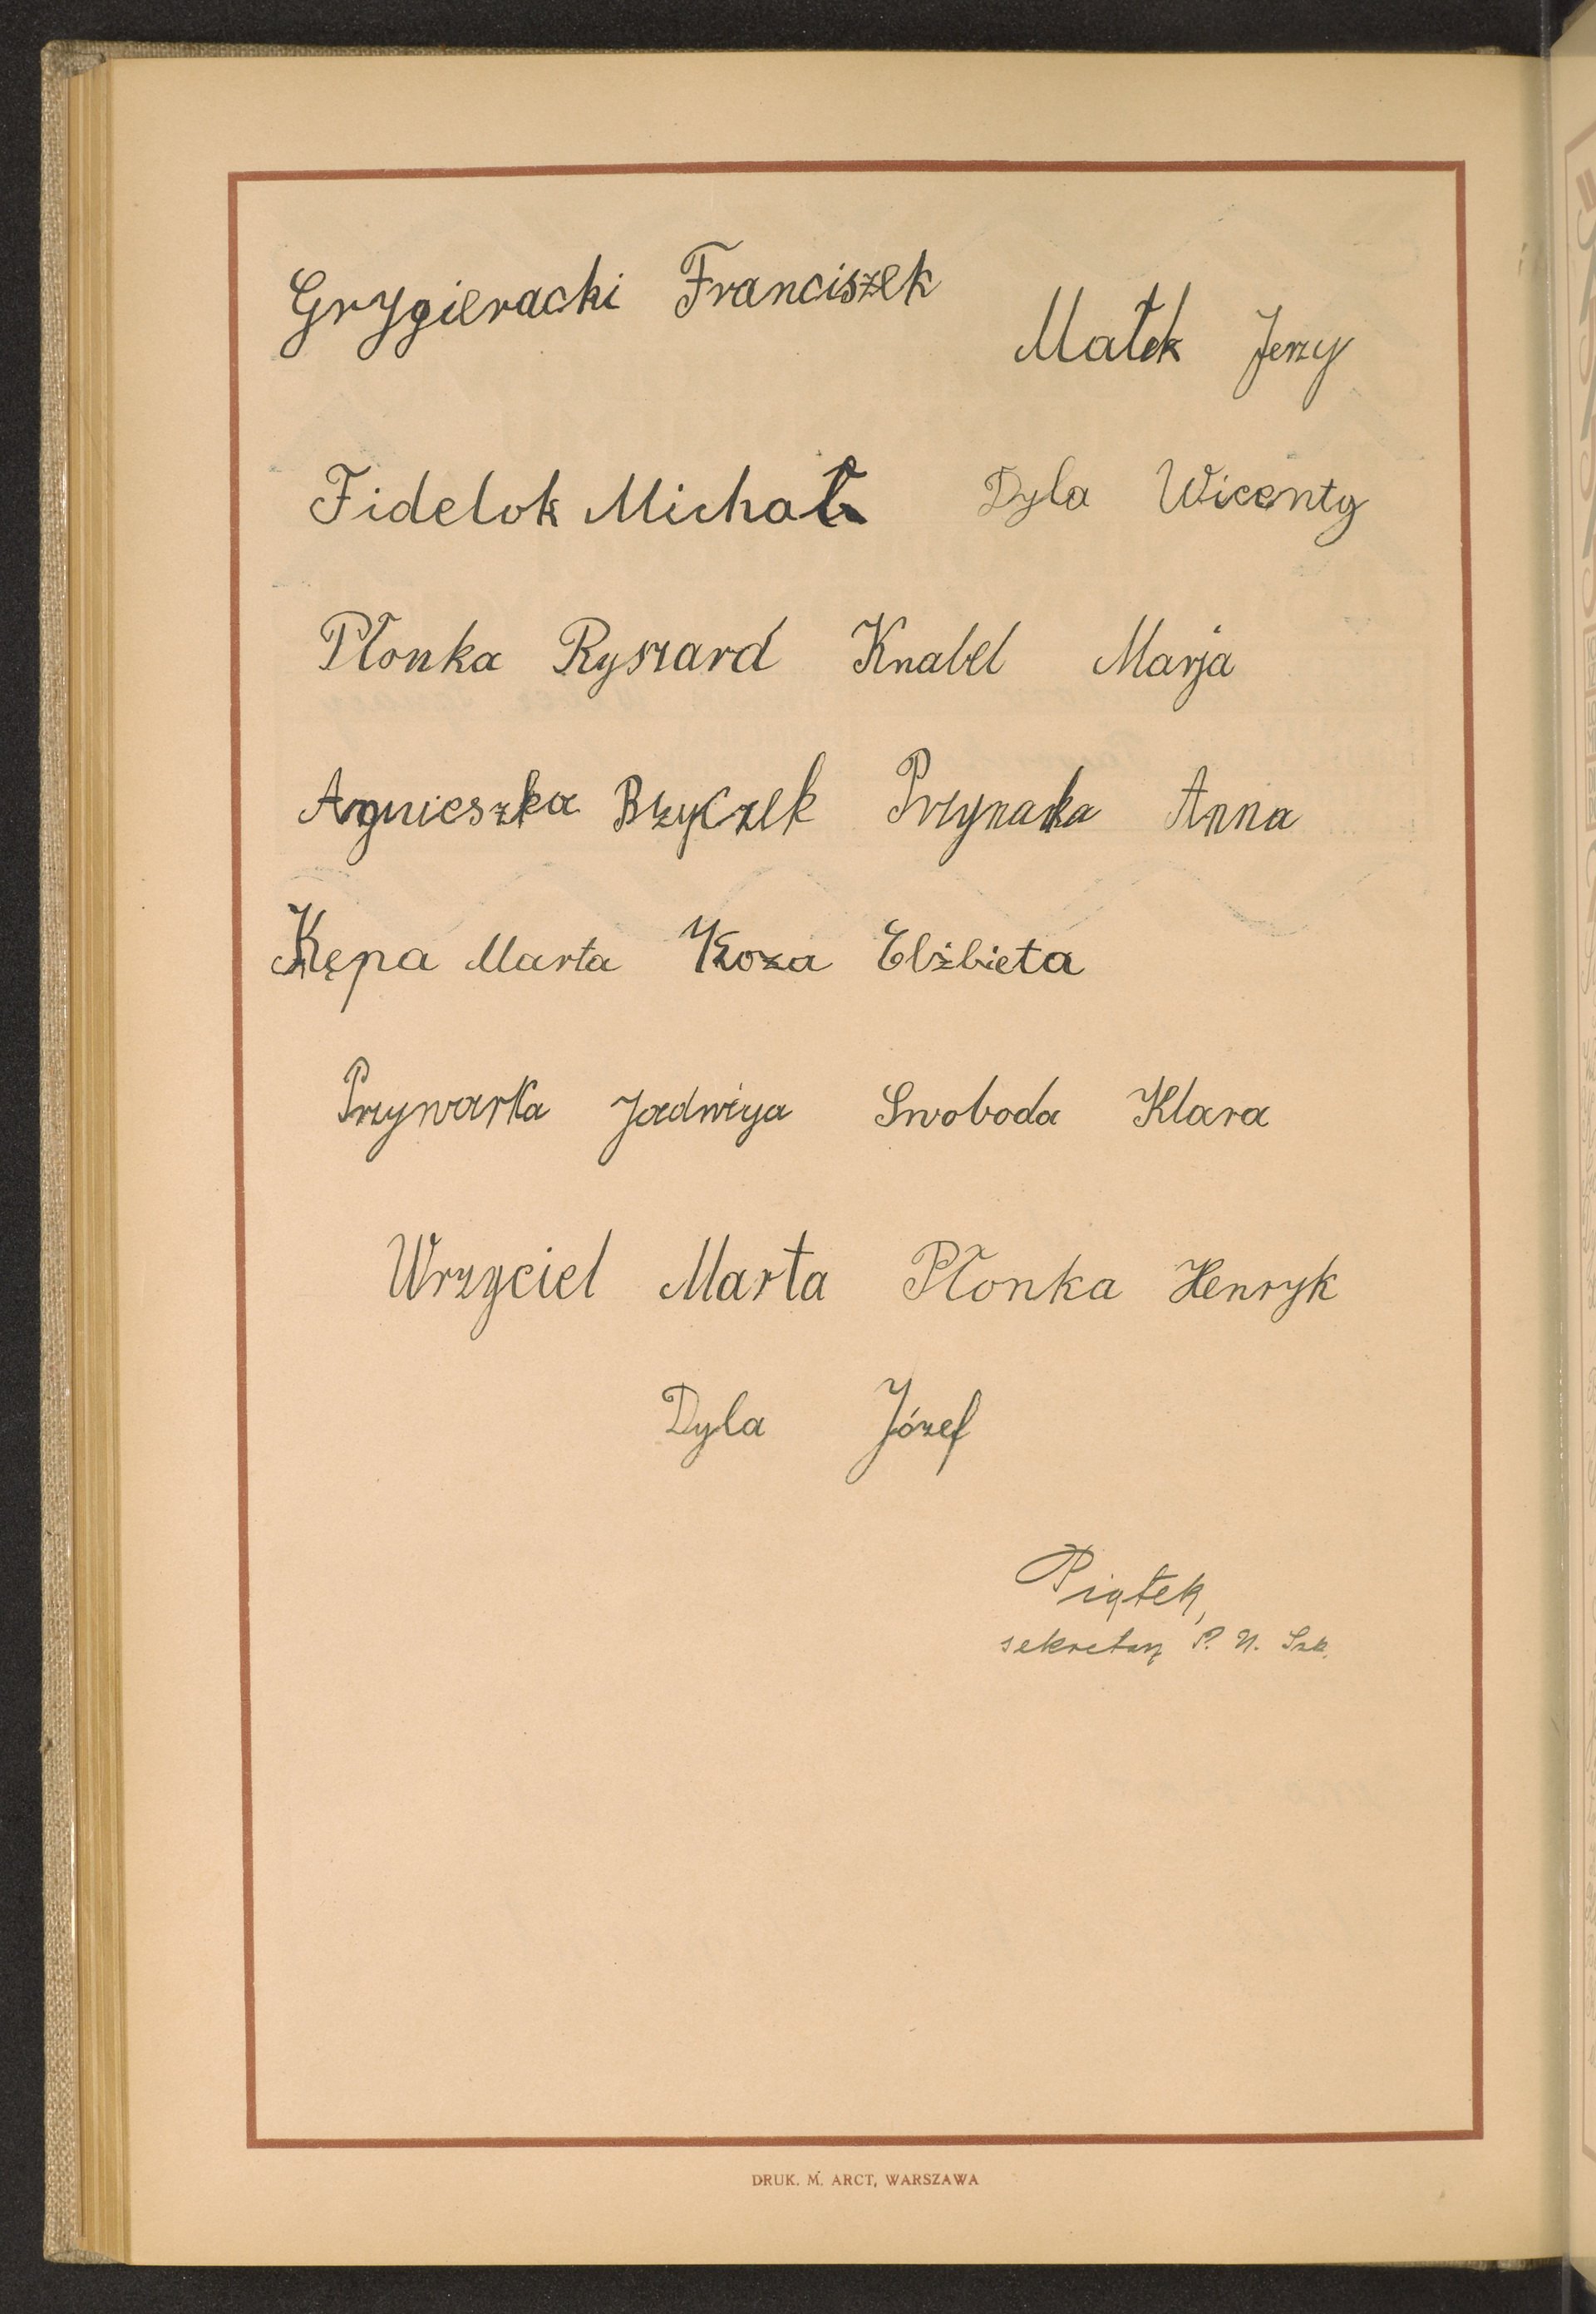 Grygieracki Franciszek
Małek Jerzy
Fidelok Michał Dyla Wicenty
Płonka Ryszard Knabel Marja
Agnieszka Bzyczek Anna
Kępa Marta Koza Elżbieta
Przywarka Jadwiga Swoboda Klara
Wrzyciel Marta Płonka Henryk
Dyla Józef
Piątek,
sekretarz P. U. Szk.
DRUK. M. ARCT, WARSZAWA